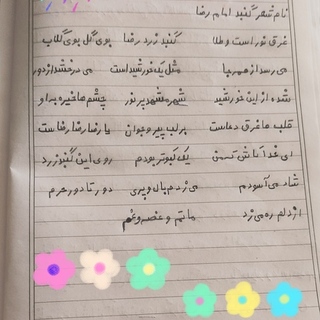 نام شعر گنبد امام رضا
غرق نور است و طلا گنبد زرد رضا بوی گل بوی گلاب
می رسد از همه جا مثل یک خورشید است می درخشد از دور
شده از این خورشید شهر مشهد پر نور چشم ها خیره به او
قلب ها غرق دعاست بر لب پیر و جوان یا رضا رضا رضاست
ای خدا کاش من یک کبوتر بودم روی این گنبد زرد
شاد می آسودم می زدم بال و پری دور تا دور حرم
از دلم ره می زد ماتم و غصه و غم